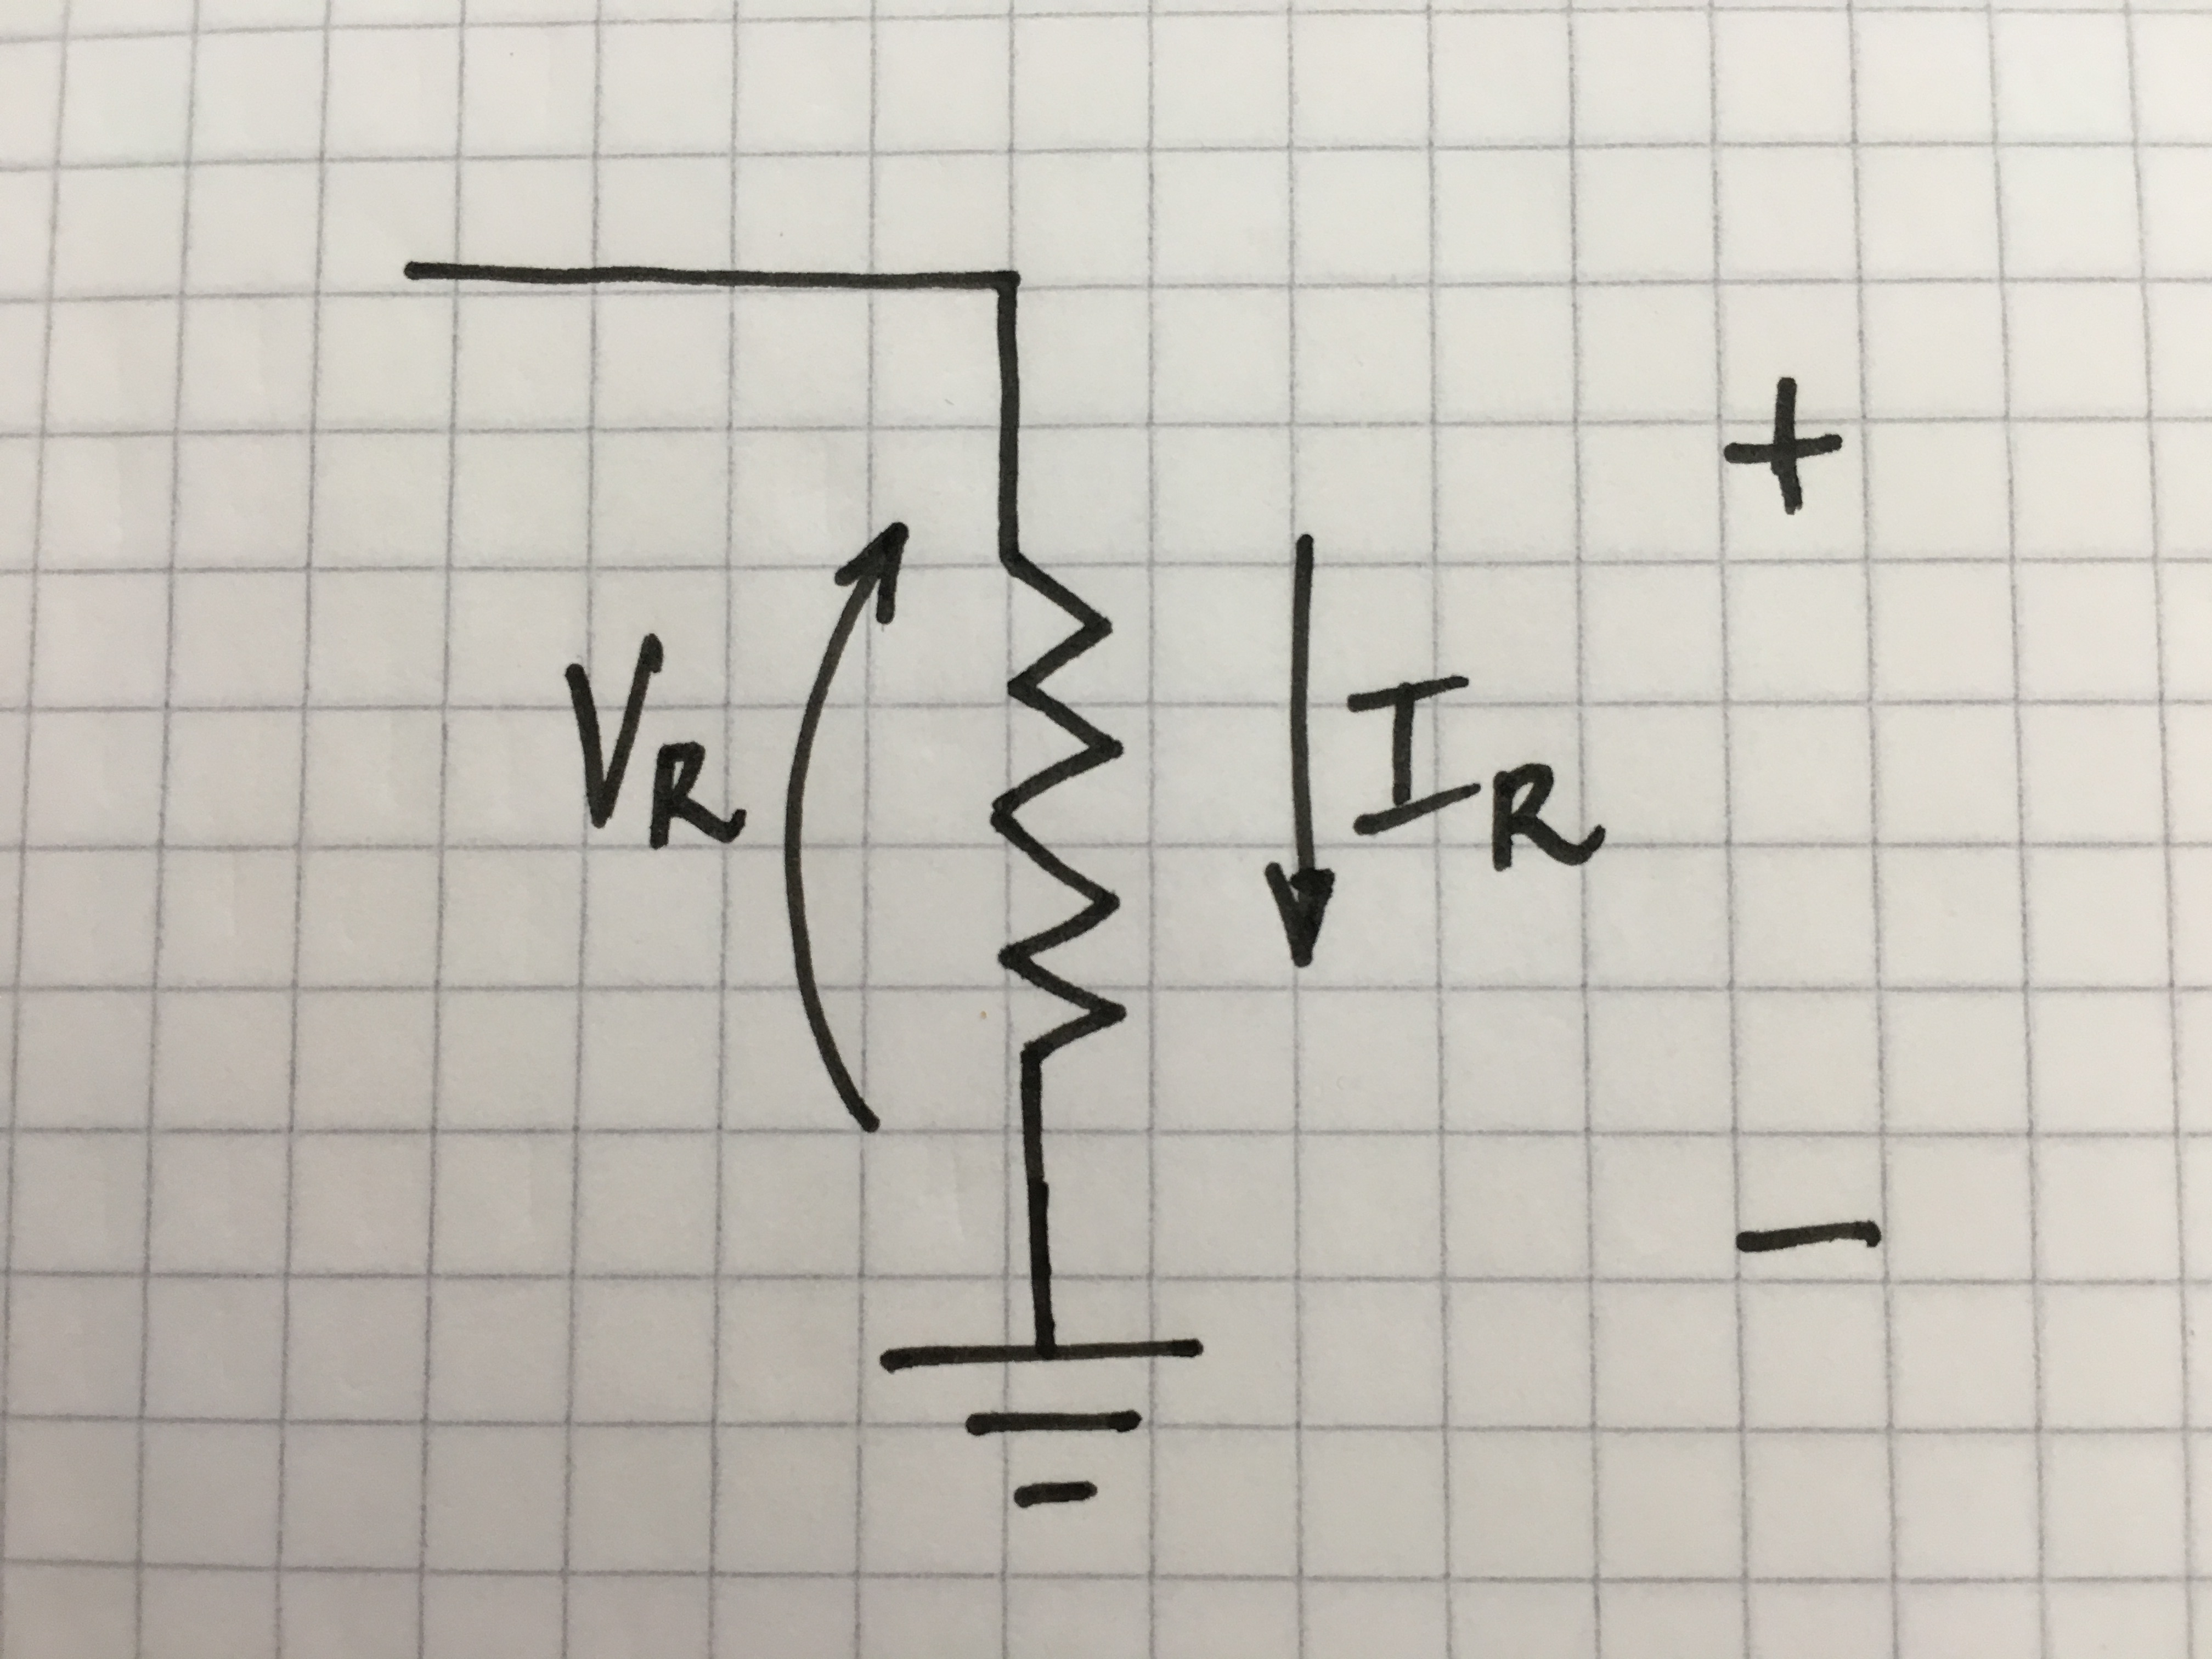 +
VR
IR
−